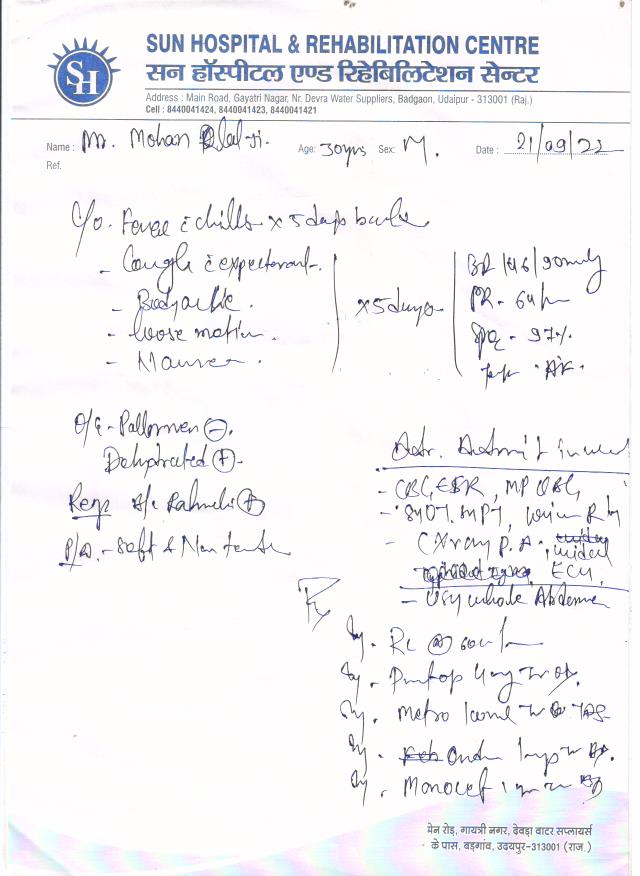 SH
SUN HOSPITAL & REHABILITATION CENTRE
सन हॉस्पीटल एण्ड रिहेबिलिटेशन सेन्टर
Address : Main Road, Gayatri Nagar, Nr. Devra Water Suppliers, Badgaon, Udaipur - 313001 (Raj.)
Cell : 8440041424, 8440041423, 8440041421
Name : Mr. Mohan Lal Ji. Age: 30yrs Sex: M. Date : 21/09/22
Ref.
C/o. Fever c chills x 5 days back
- Cough c expectorant.
- Bodyache.
- loose motion.
- Nausea.
x5 days
BP 146/90 mmHg
PR - 64/m
SpO2 - 97%
O/E - Pallor (-).
Dehydrated (+).
Resp
P/A. - Soft & Non tender
Adv. Admit in ward
- CBC, ESR, MP
- SGOT, SGPT, Urine R
- C Xray P.A.
ECG,
- USG whole Abdomen
Rx
Inj. RL
Inj. Pantop 40mg IV OD.
Inj. Metro 100ml IV TDS
Inj. Onden
Inj. Monocef 1gm IV BD
मेन रोड़, गायत्री नगर, देवड़ा वाटर सप्लायर्स
के पास, बड़गांव, उदयपुर-313001 (राज.)